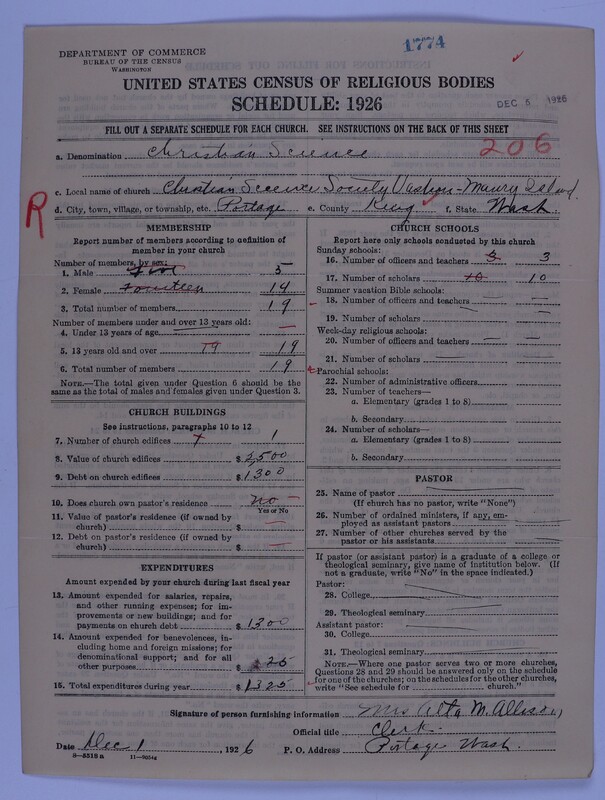 1774
DEPARTMENT OF COMMERCE
BUREAU OF THE CENSUS
WASHINGTON
UNITED STATES CENSUS OF RELIGIOUS BODIES
SCHEDULE: 1926
DEC 6 1926
FILL OUT A SEPARATE SCHEDULE FOR EACH CHURCH. SEE INSTRUCTIONS ON THE BACK OF THIS SHEET
206
a. Denomination Christian Science
R
c. Local name of church Christian Science Society Vashon-Maury Island.
d. City, town, village, or township, etc. Portage e. County King f. State Wash
MEMBERSHIP
Report number of members according to definition of
member in your church
Number of members, by sex:
1. Male five 5
2. Female fourteen 14
3. Total number of members 19
Number of members under and over 13 years old:
4. Under 13 years of age —
5. 13 years old and over 19 19
6. Total number of members 19
NOTE.—The total given under Question 6 should be the
same as the total of males and females given under Question 3.
CHURCH BUILDINGS
See instructions, paragraphs 10 to 12
7. Number of church edifices 1
8. Value of church edifices $ 2,500
9. Debt on church edifices $ 1300
10. Does church own pastor's residence No —
Yes or No
11. Value of pastor's residence (if owned by
church) $ —
12. Debt on pastor's residence (if owned by
church) $ —
EXPENDITURES
Amount expended by your church during last fiscal year
13. Amount expended for salaries, repairs,
and other running expenses; for im-
provements or new buildings; and for
payments on church debt $ 1300
14. Amount expended for benevolences, in-
cluding home and foreign missions; for
denominational support; and for all
other purposes $ 25
15. Total expenditures during year $ 1325
CHURCH SCHOOLS
Report here only schools conducted by this church
Sunday schools:
16. Number of officers and teachers 3 3
17. Number of scholars 10 10
Summer vacation Bible schools:
18. Number of officers and teachers — —
19. Number of scholars —
Week-day religious schools:
20. Number of officers and teachers — —
21. Number of scholars —
Parochial schools:
22. Number of administrative officers
23. Number of teachers—
a. Elementary (grades 1 to 8)
b. Secondary
24. Number of scholars—
a. Elementary (grades 1 to 8)
b. Secondary
PASTOR
25. Name of pastor
(If church has no pastor, write "None")
26. Number of ordained ministers, if any, em-
ployed as assistant pastors
27. Number of other churches served by the
pastor or his assistants
If pastor (or assistant pastor) is a graduate of a college or
theological seminary, give name of institution below. (If
not a graduate, write "No" in the space indicated.)
Pastor:
28. College
29. Theological seminary
Assistant pastor:
30. College
31. Theological seminary
NOTE.—Where one pastor serves two or more churches,
Questions 28 and 29 should be answered only on the schedule
for one of the churches; on the schedules for the other churches,
write "See schedule for church."
Signature of person furnishing information Mrs Alta M. Allison
Official title Clerk
Date Dec 1, 1926 P. O. Address Portage Wash.
8-5518 a